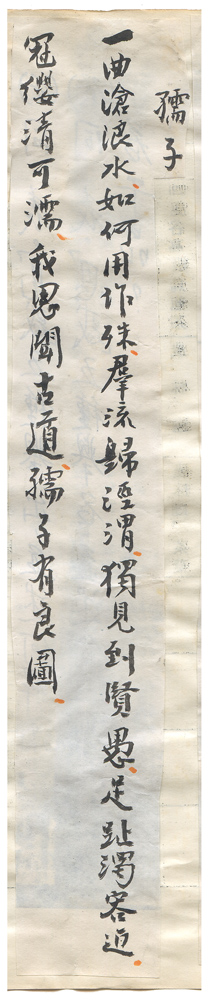 孺子
一曲滄浪水如何用作殊羣流歸涇渭獨見到賢愚足趾濁容迎
冠纓清可濡我思闡古道孺子有良圖